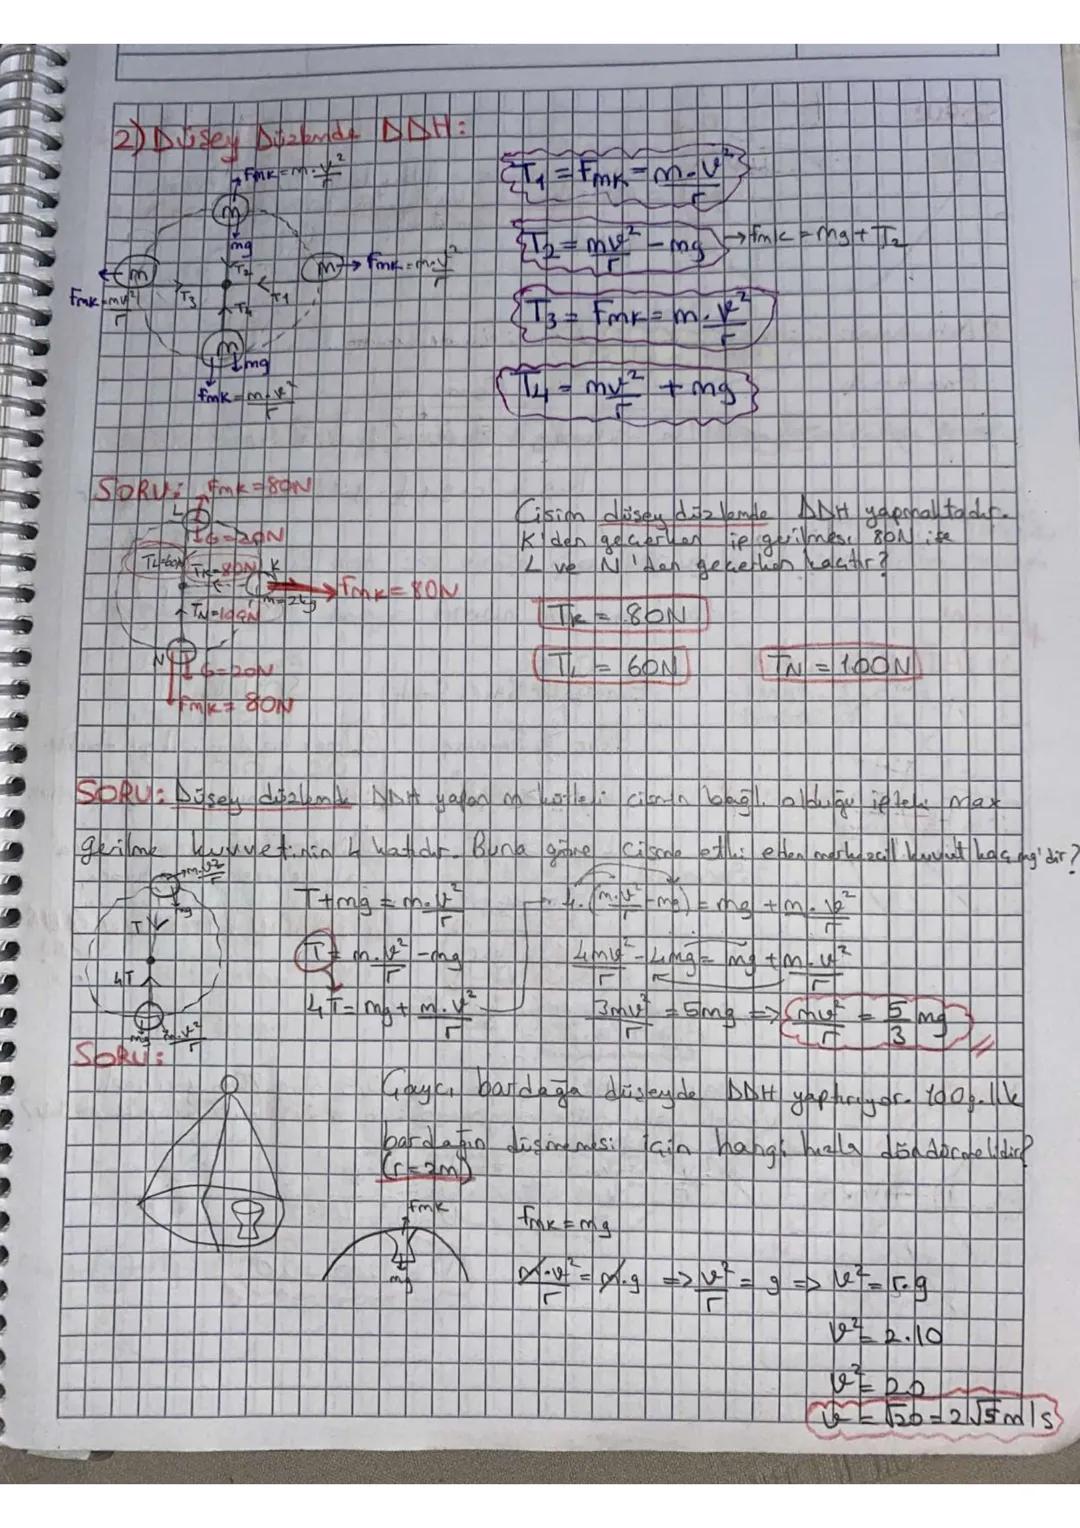 2) Düşey Düzlemde DDH:
Fmk=m.v²/r
m
mg
T2
m
Fmk=mv²/r
T3
T1
m
Fmk=m.v²/r
T4
m
mg
Fmk=m.v²/r
T1 = Fmk = m.v²/r
T2 = mv²/r - mg → fmk = mg + T2
T3 = Fmk = m.v²/r
T4 = mv²/r + mg
SORU:
Fmk=80N
L
G=20N
TL=60N
TK=80N
K
m=2kg
Fmk=80N
TN=100N
N
G=20N
Fmk=80N
Cisim düşey düzlemde DDH yapmaktadır.
K'den geçerken ip gerilmesi 80N ise
L ve N'den geçerken kaçtır?
TK = 80N
TL = 60N
TN = 100N
SORU: Düşey düzlemde DDH yapan m kütleli cismin bağlı olduğu ipteki max
gerilme kuvvetinin 4 katıdır. Buna göre cisme etki eden merkezcil kuvvet kaç mg'dir?
m.v²/r
mg
T
4T
mg
m.v²/r
T+mg = m.v²/r
T = m.v²/r - mg
4T = mg + m.v²/r
4.(m.v²/r - mg) = mg + m.v²/r
4mv²/r - 4mg = mg + m.v²/r
3mv²/r = 5mg => mv²/r = 5/3 mg
SORU:
Çaycı bardağa düşeyde DDH yaptırıyor. 100g.lık
bardağın düşmemesi için hangi hızla döndürmelidir?
(r=2m)
fmk
mg
fmk = mg
m.v²/r = m.g => v²/r = g => v² = r.g
v² = 2.10
v² = 20
v = √20 = 2√5 m/s